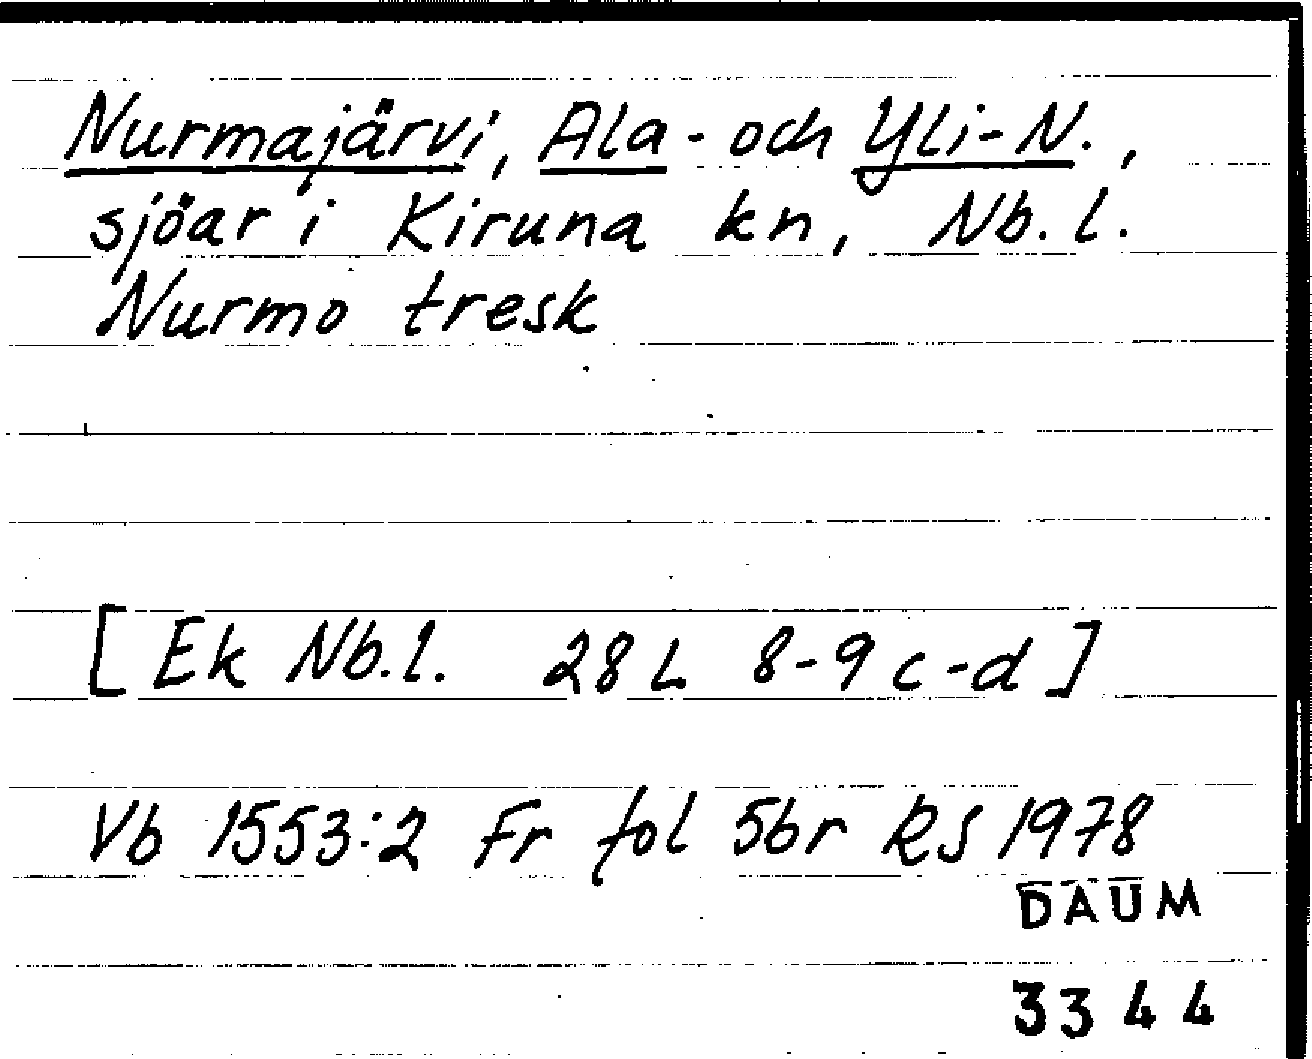 Nurmajärvi, Ala- och Yli-N.,
sjöar i Kiruna kn, Nb.l.
Nurmo tresk
[Ek Nb.l. 28L 8-9 c-d]
Vb 1553:2 Fr fol 56r RS 1978
DAUM
3344